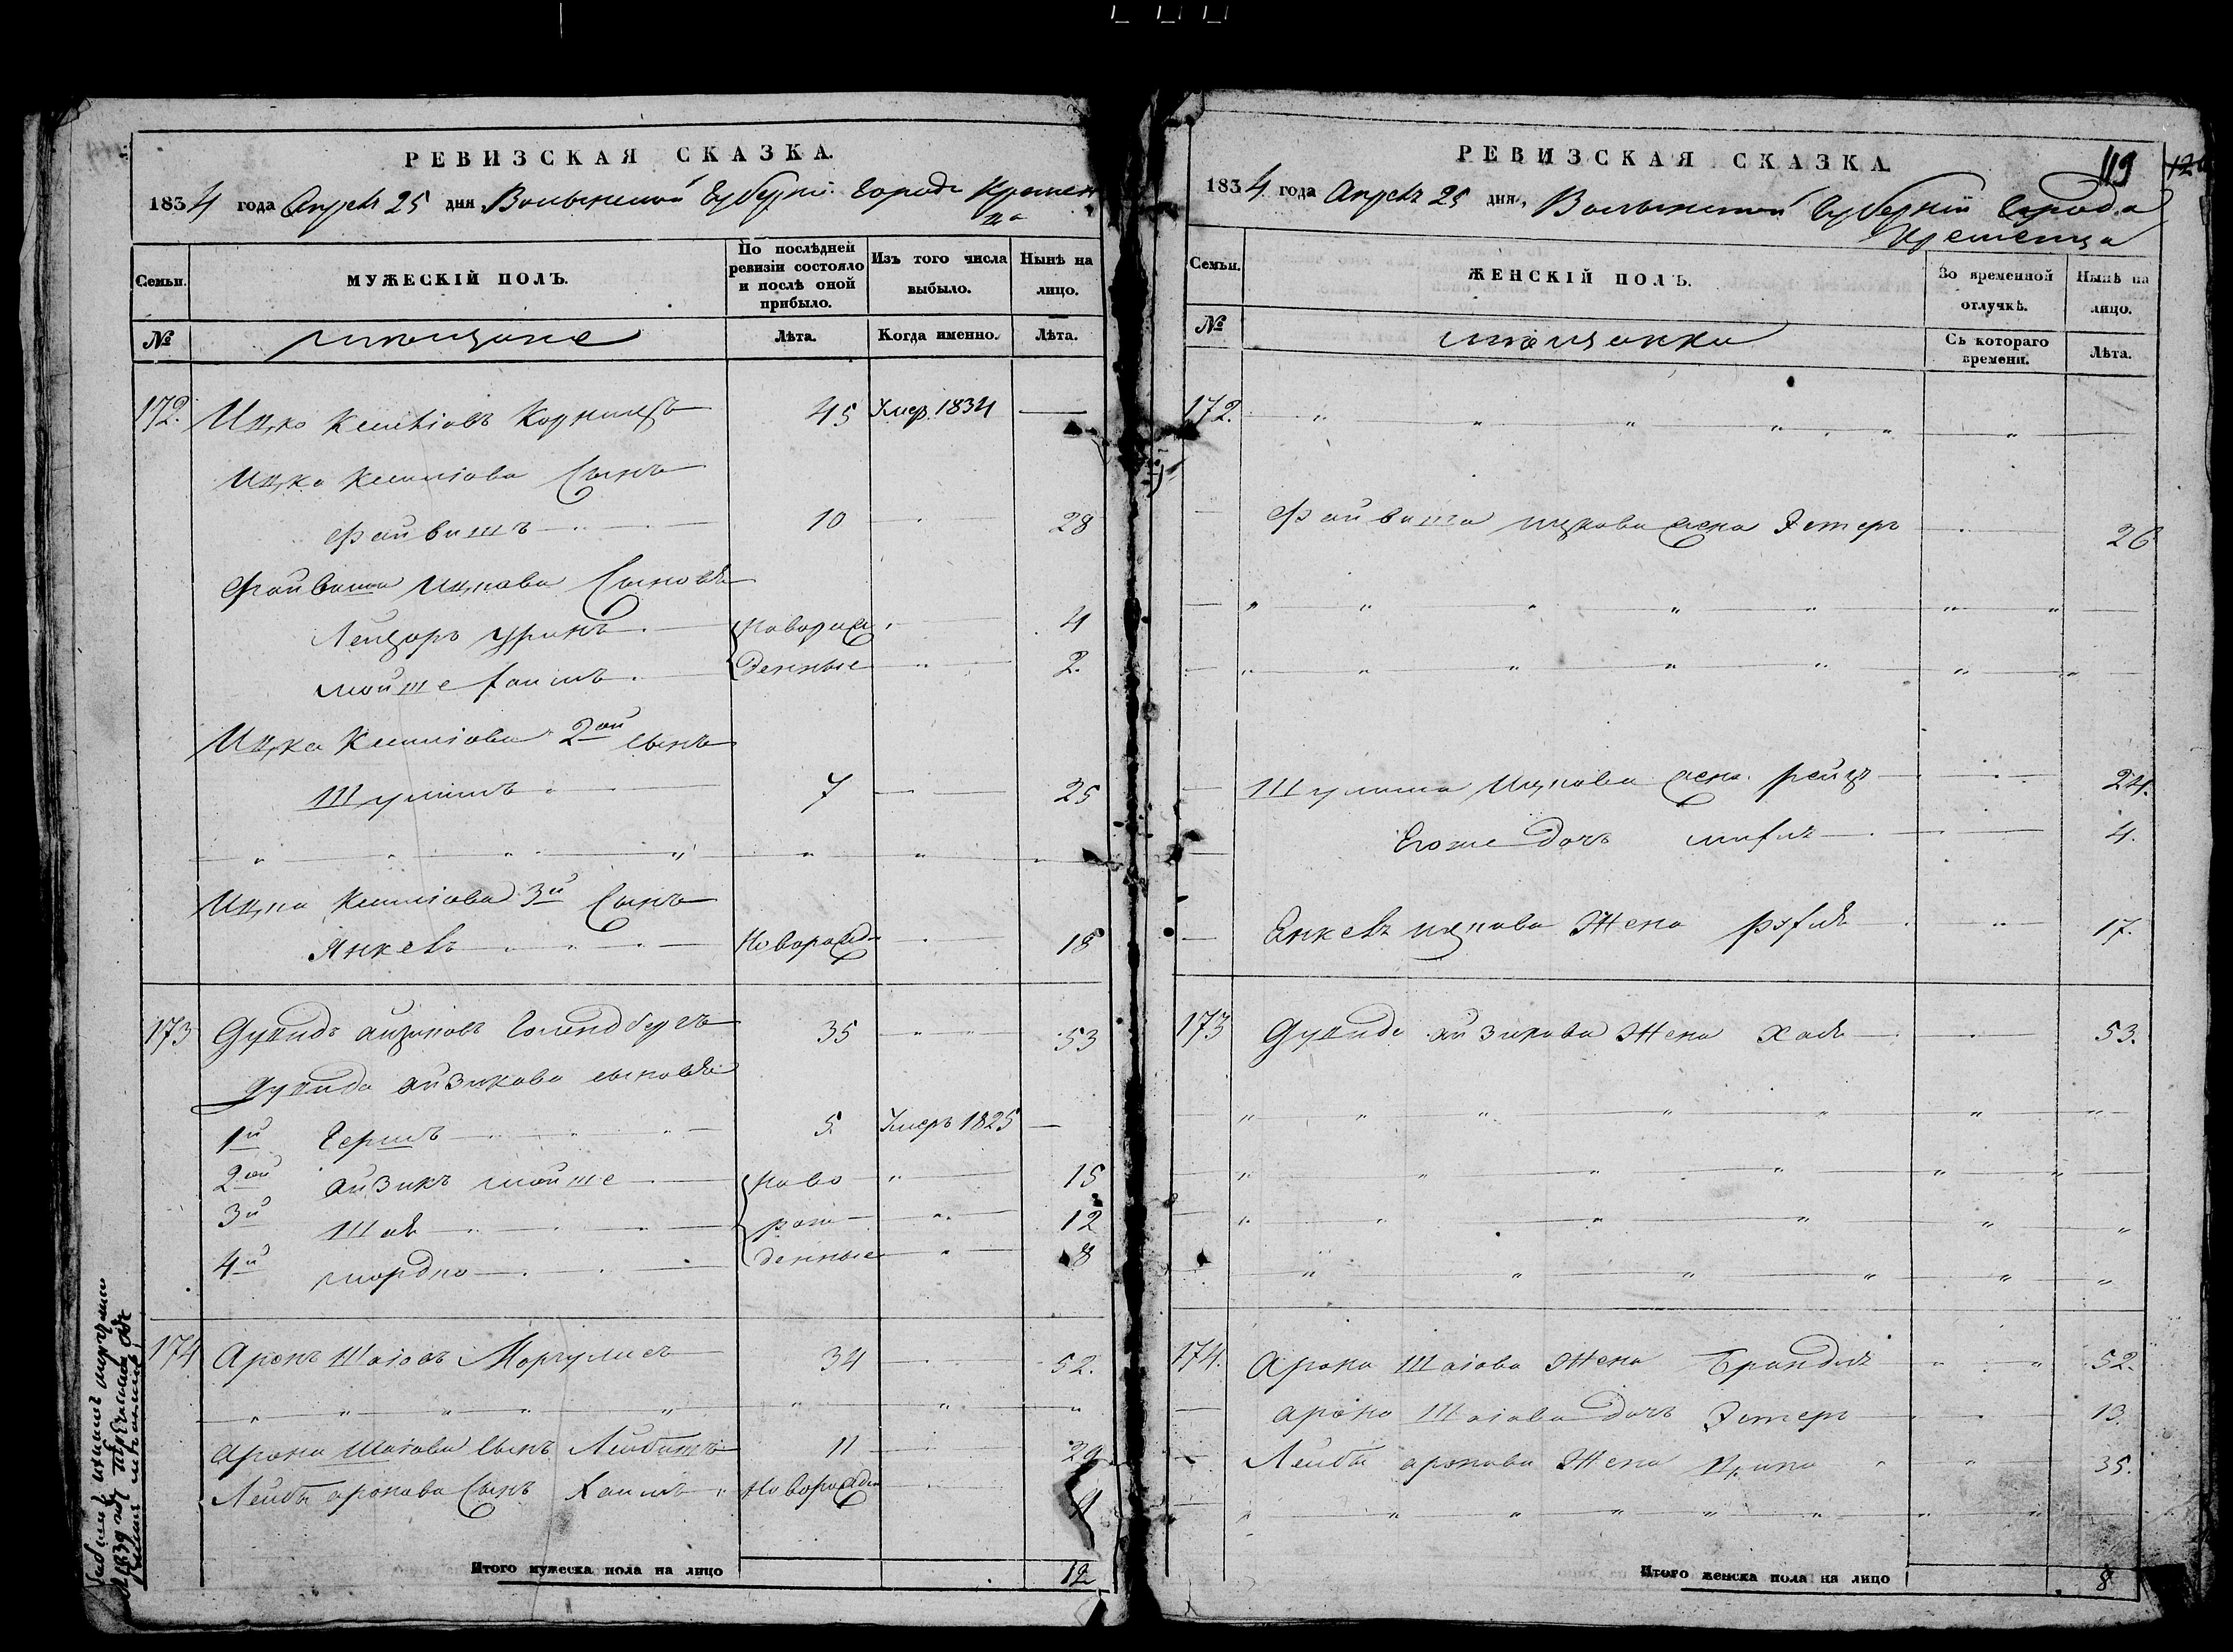 РЕВИЗСКАЯ СКАЗКА.
1834 года Апреля 25 дня Волынской Губерніи Города Кременца
Семьи.
МУЖЕСКІЙ ПОЛЪ.
По послѣдней ревизіи состояло и послѣ оной прибыло.
Изъ того числа выбыло.
Нынѣ на лицо.
№
мещане
Лѣта.
Когда именно.
Лѣта.
172. Ицко Кельмовъ 45 Умер. 1834 —
Ицка сынъ
Файвишъ 10 28
Файвиша Ицкова Сыновья
Лейзоръ новорож 4
мойше хаимъ денные 2.
Ицка 2ой сынъ
Шулимъ 7 25
Ицка 3й Сынъ
Янкевъ Новорожд 18
173 Дувидъ Айзиковъ Голендбергъ 35 53
Дувида Айзикова сыновья
1й Гершъ 5. Умеръ 1825 —
2ой Айзикъ мойше ново 15
3й Шая рож 12
4й мордко денные 8
174 Аронъ Шаіовъ Маргулисъ 34 52.
Арона Шаіова Сынъ Лейба 11 29
Лейбы Аронова Сынъ Хаимъ Новорожд
Итого мужеска пола на лицо 12
РЕВИЗСКАЯ СКАЗКА.
119
1834 года Апреля 25 дня, Волынской Губерніи Города
Кременца
Семьи.
ЖЕНСКІЙ ПОЛЪ.
Во временной отлучкѣ.
Нынѣ на лицо.
№
мещанки
Съ котораго времени.
Лѣта.
172.
Файвиша Ицкова жена Эстеръ 26
Шулима Ицкова жена Рейзя 24.
Егоже дочь 4.
Янкева Ицкова Жена Рухля 17.
173 Дувида Айзикова Жена Хая 53.
174. Арона Шаіова Жена Брандля 52.
Арона Шаіова дочь Эстеръ 13.
Лейбы Аронова Жена Ципа 35.
Итого женска пола на лицо 8